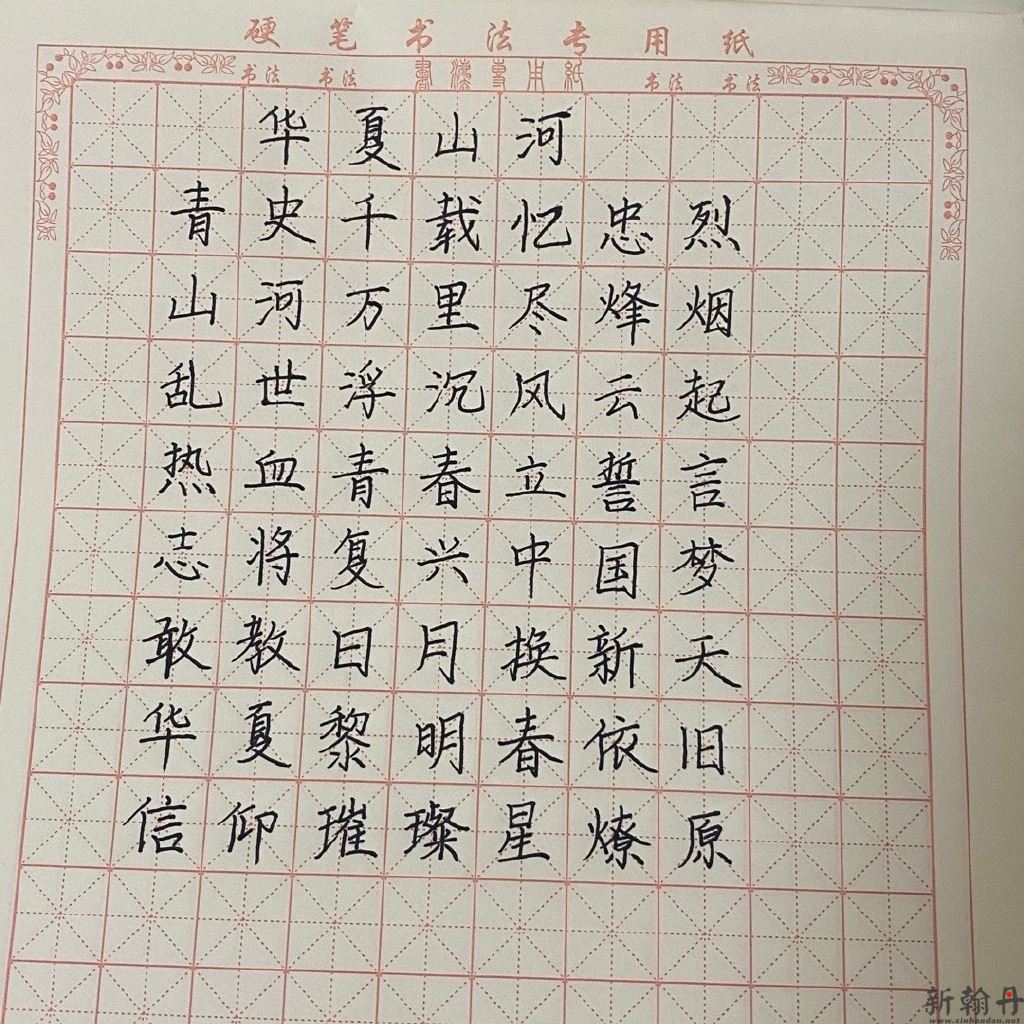 硬笔书法专用纸
书法 书法 書法専用紙 书法 书法
华夏山河
青史千载忆忠烈
山河万里尽烽烟
乱世浮沉风云起
热血青春立誓言
志将复兴中国梦
敢教日月换新天
华夏黎明春依旧
信仰璀璨星燎原
新翰丹
www.xinhandan.net